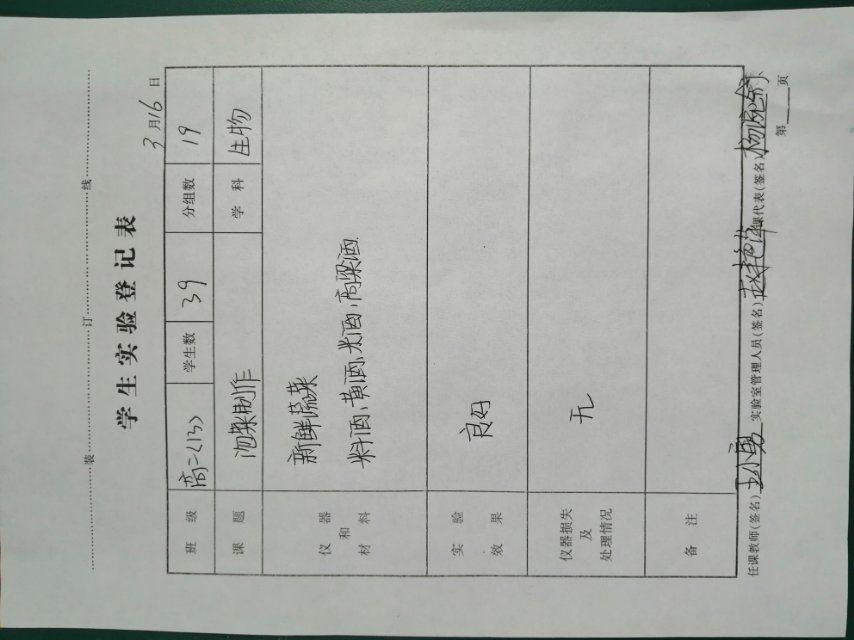 装 订 线
学生实验登记表
3月16日
班级 高二(13) 学生数 39 分组数 19
课题 泡菜制作 学科 生物
仪器和材料 新鲜蔬菜
料酒、黄酒、米酒、高粱酒
实验效果 良好
仪器损失及处理情况 无
备注
任课教师(签名) 实验室管理人员(签名) 课代表(签名)
第 页